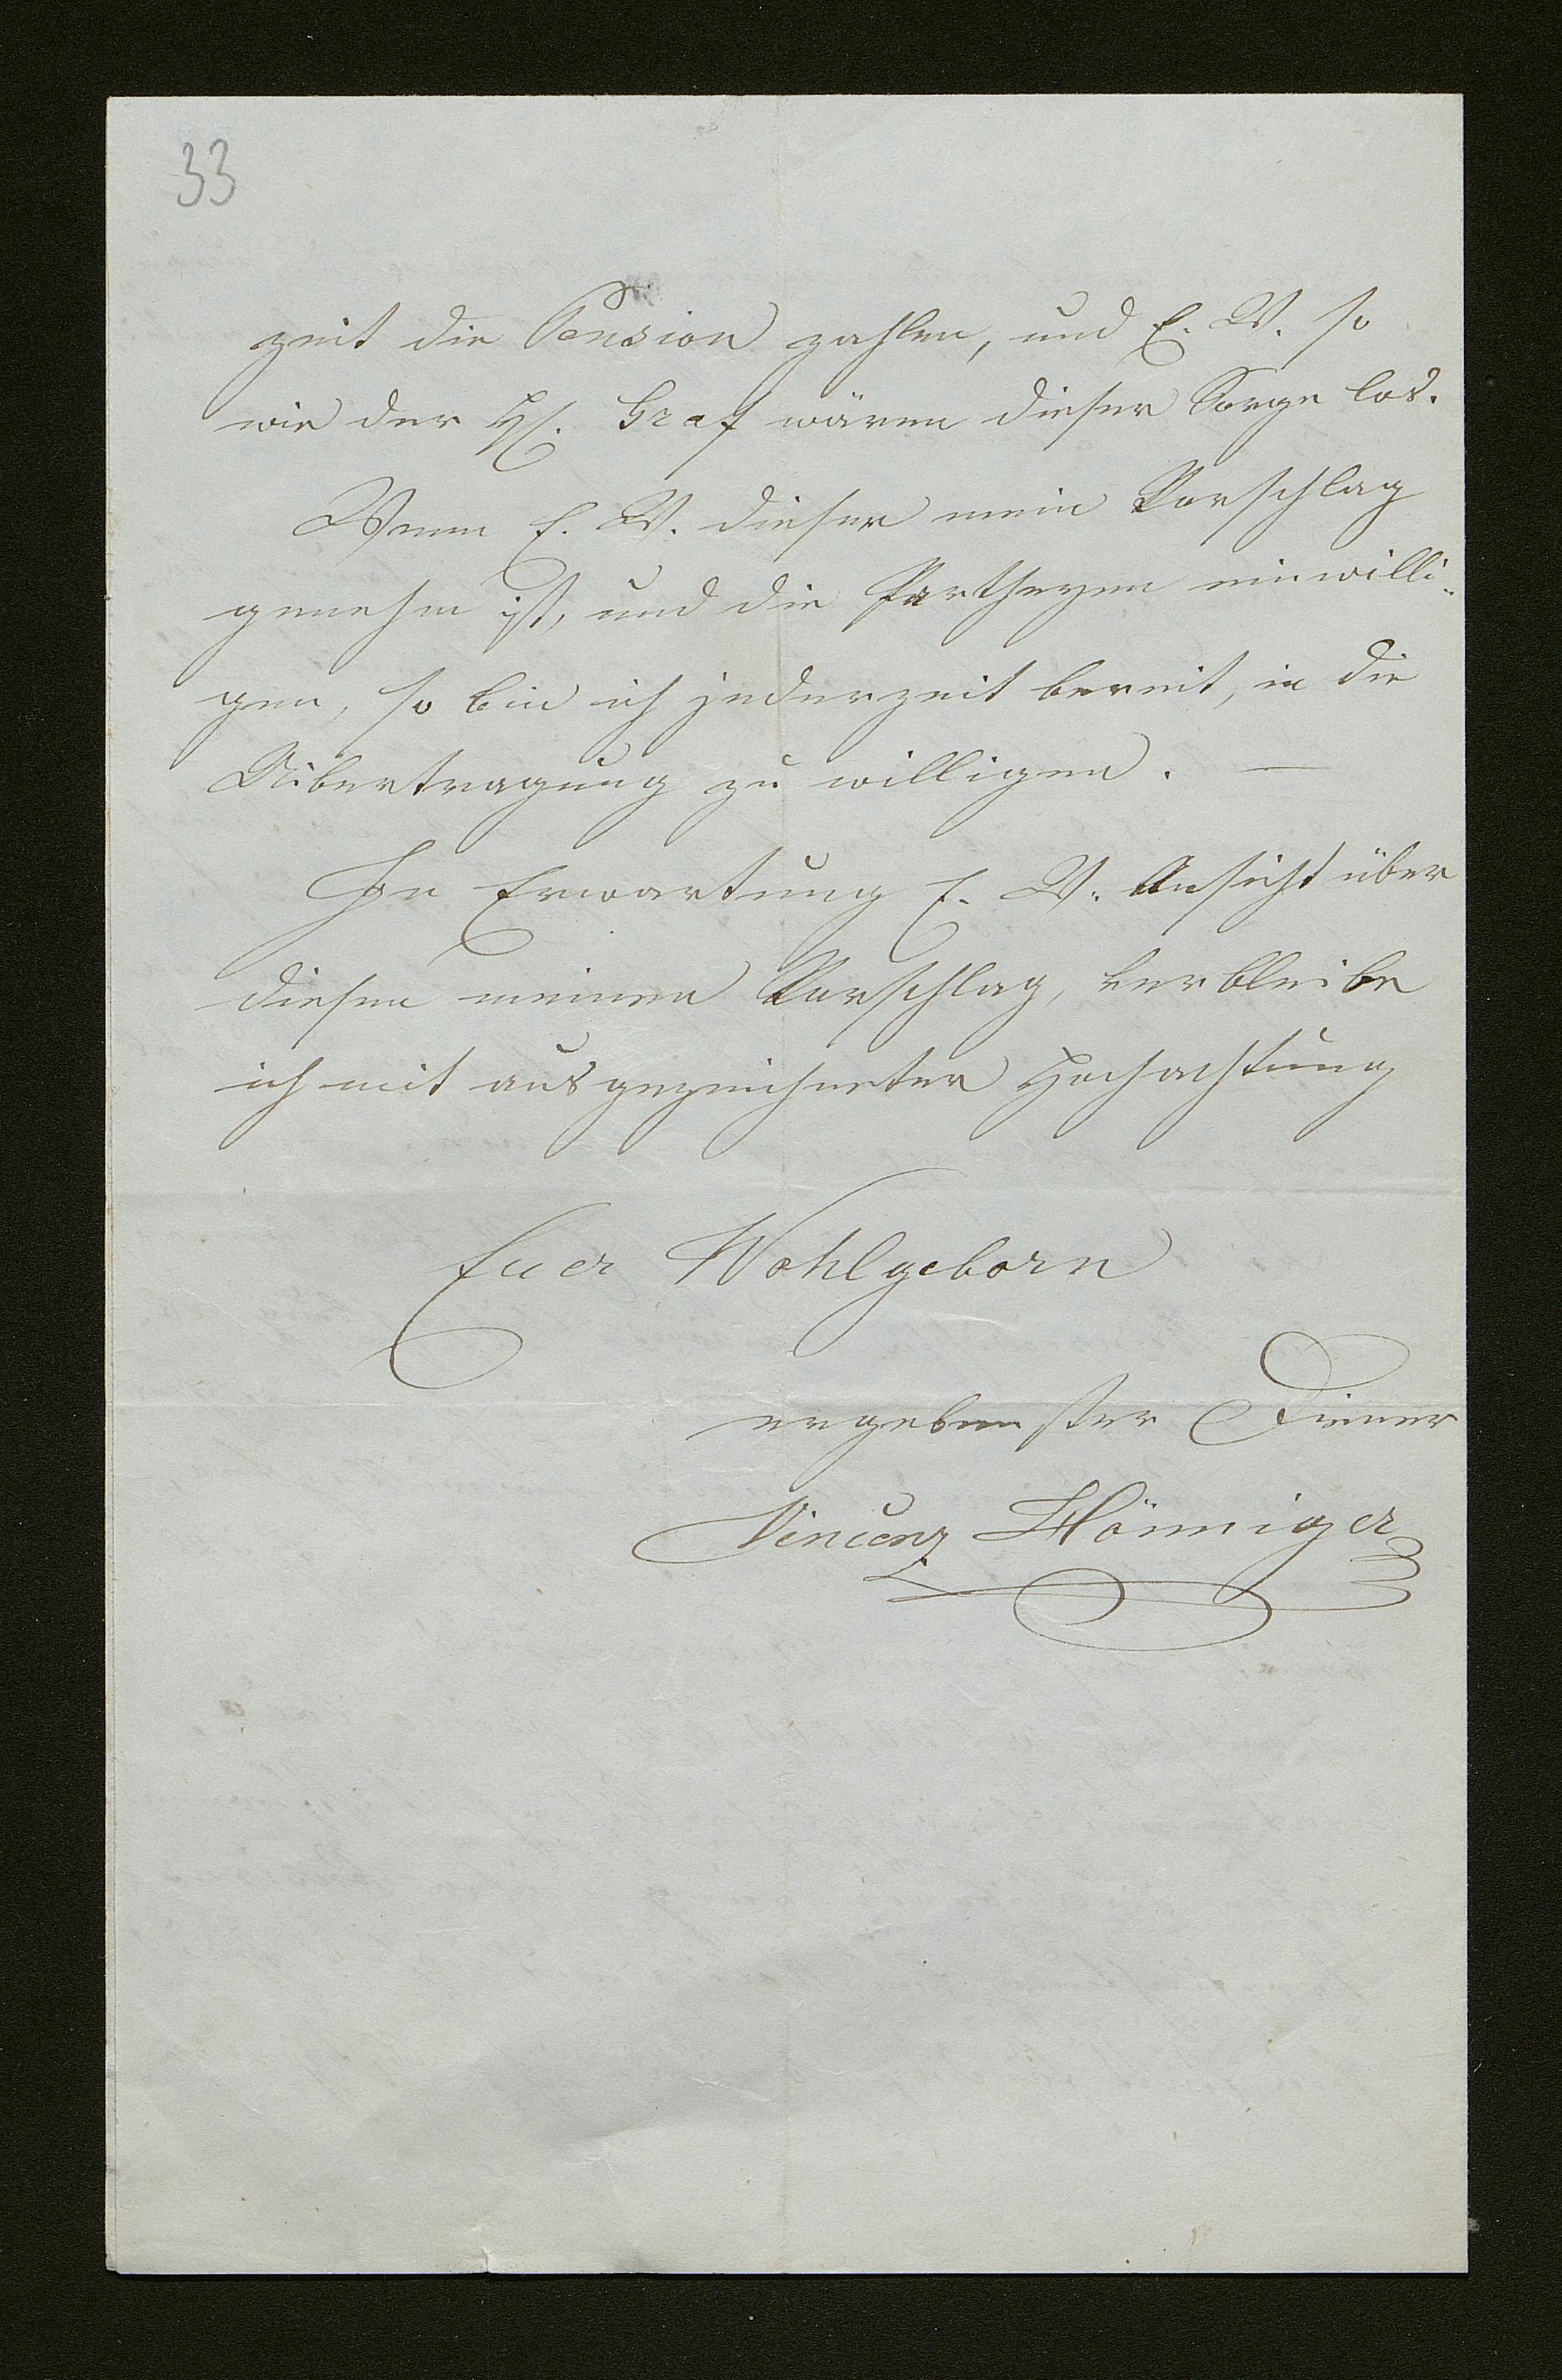 33
zeit die Pension zahlen, und E. W. so
wie der H. Graf wären dieser Sorge los.
Wenn E. W. dieser mein Vorschlag
genehm ist, und die Partheyen einwilli-
gen, so bin ich jederzeit bereit, in die
Uibertragung zu willigen. —
In Erwartung E. W. Ansicht über
diesen meinen Vorschlag, verbleibe
ich mit ausgezeichneter Hochachtung
Euer Wohlgeborn
ergebenster Diener
Vincenz Hönniger